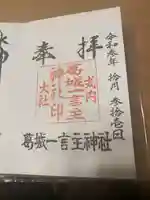 奉拝
令和参年 拾月 参拾壱日
式内
葛城一言主
大社
葛城一言主神社